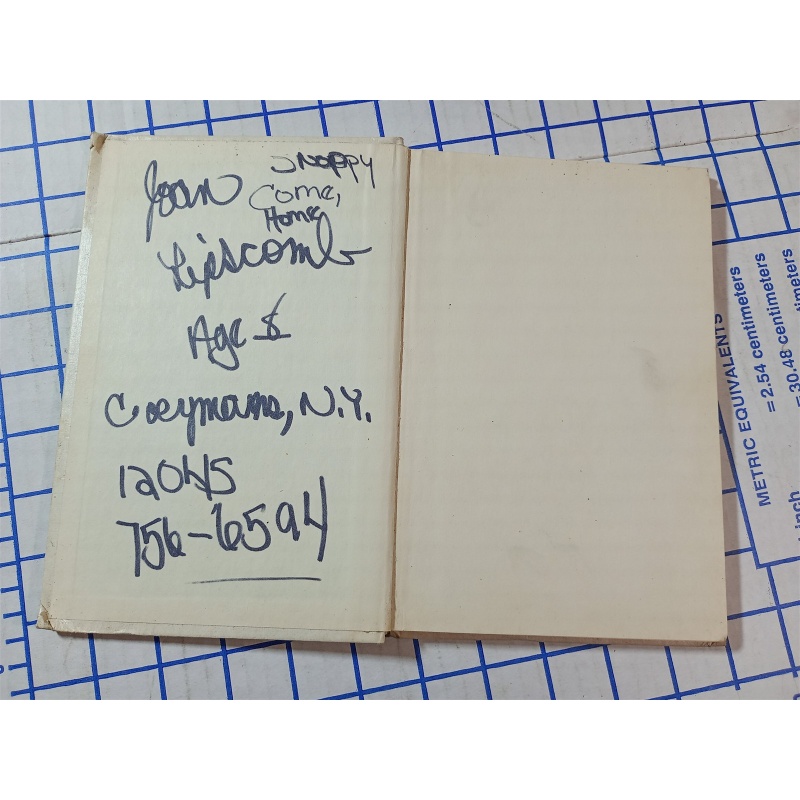 Joan
Snoppy
Come,
Home
Lipscomb
Age
Coeymans, N.Y.
12045
756-6594
METRIC EQUIVALENTS
= 2.54 centimeters
= 30.48 centimeters
inch